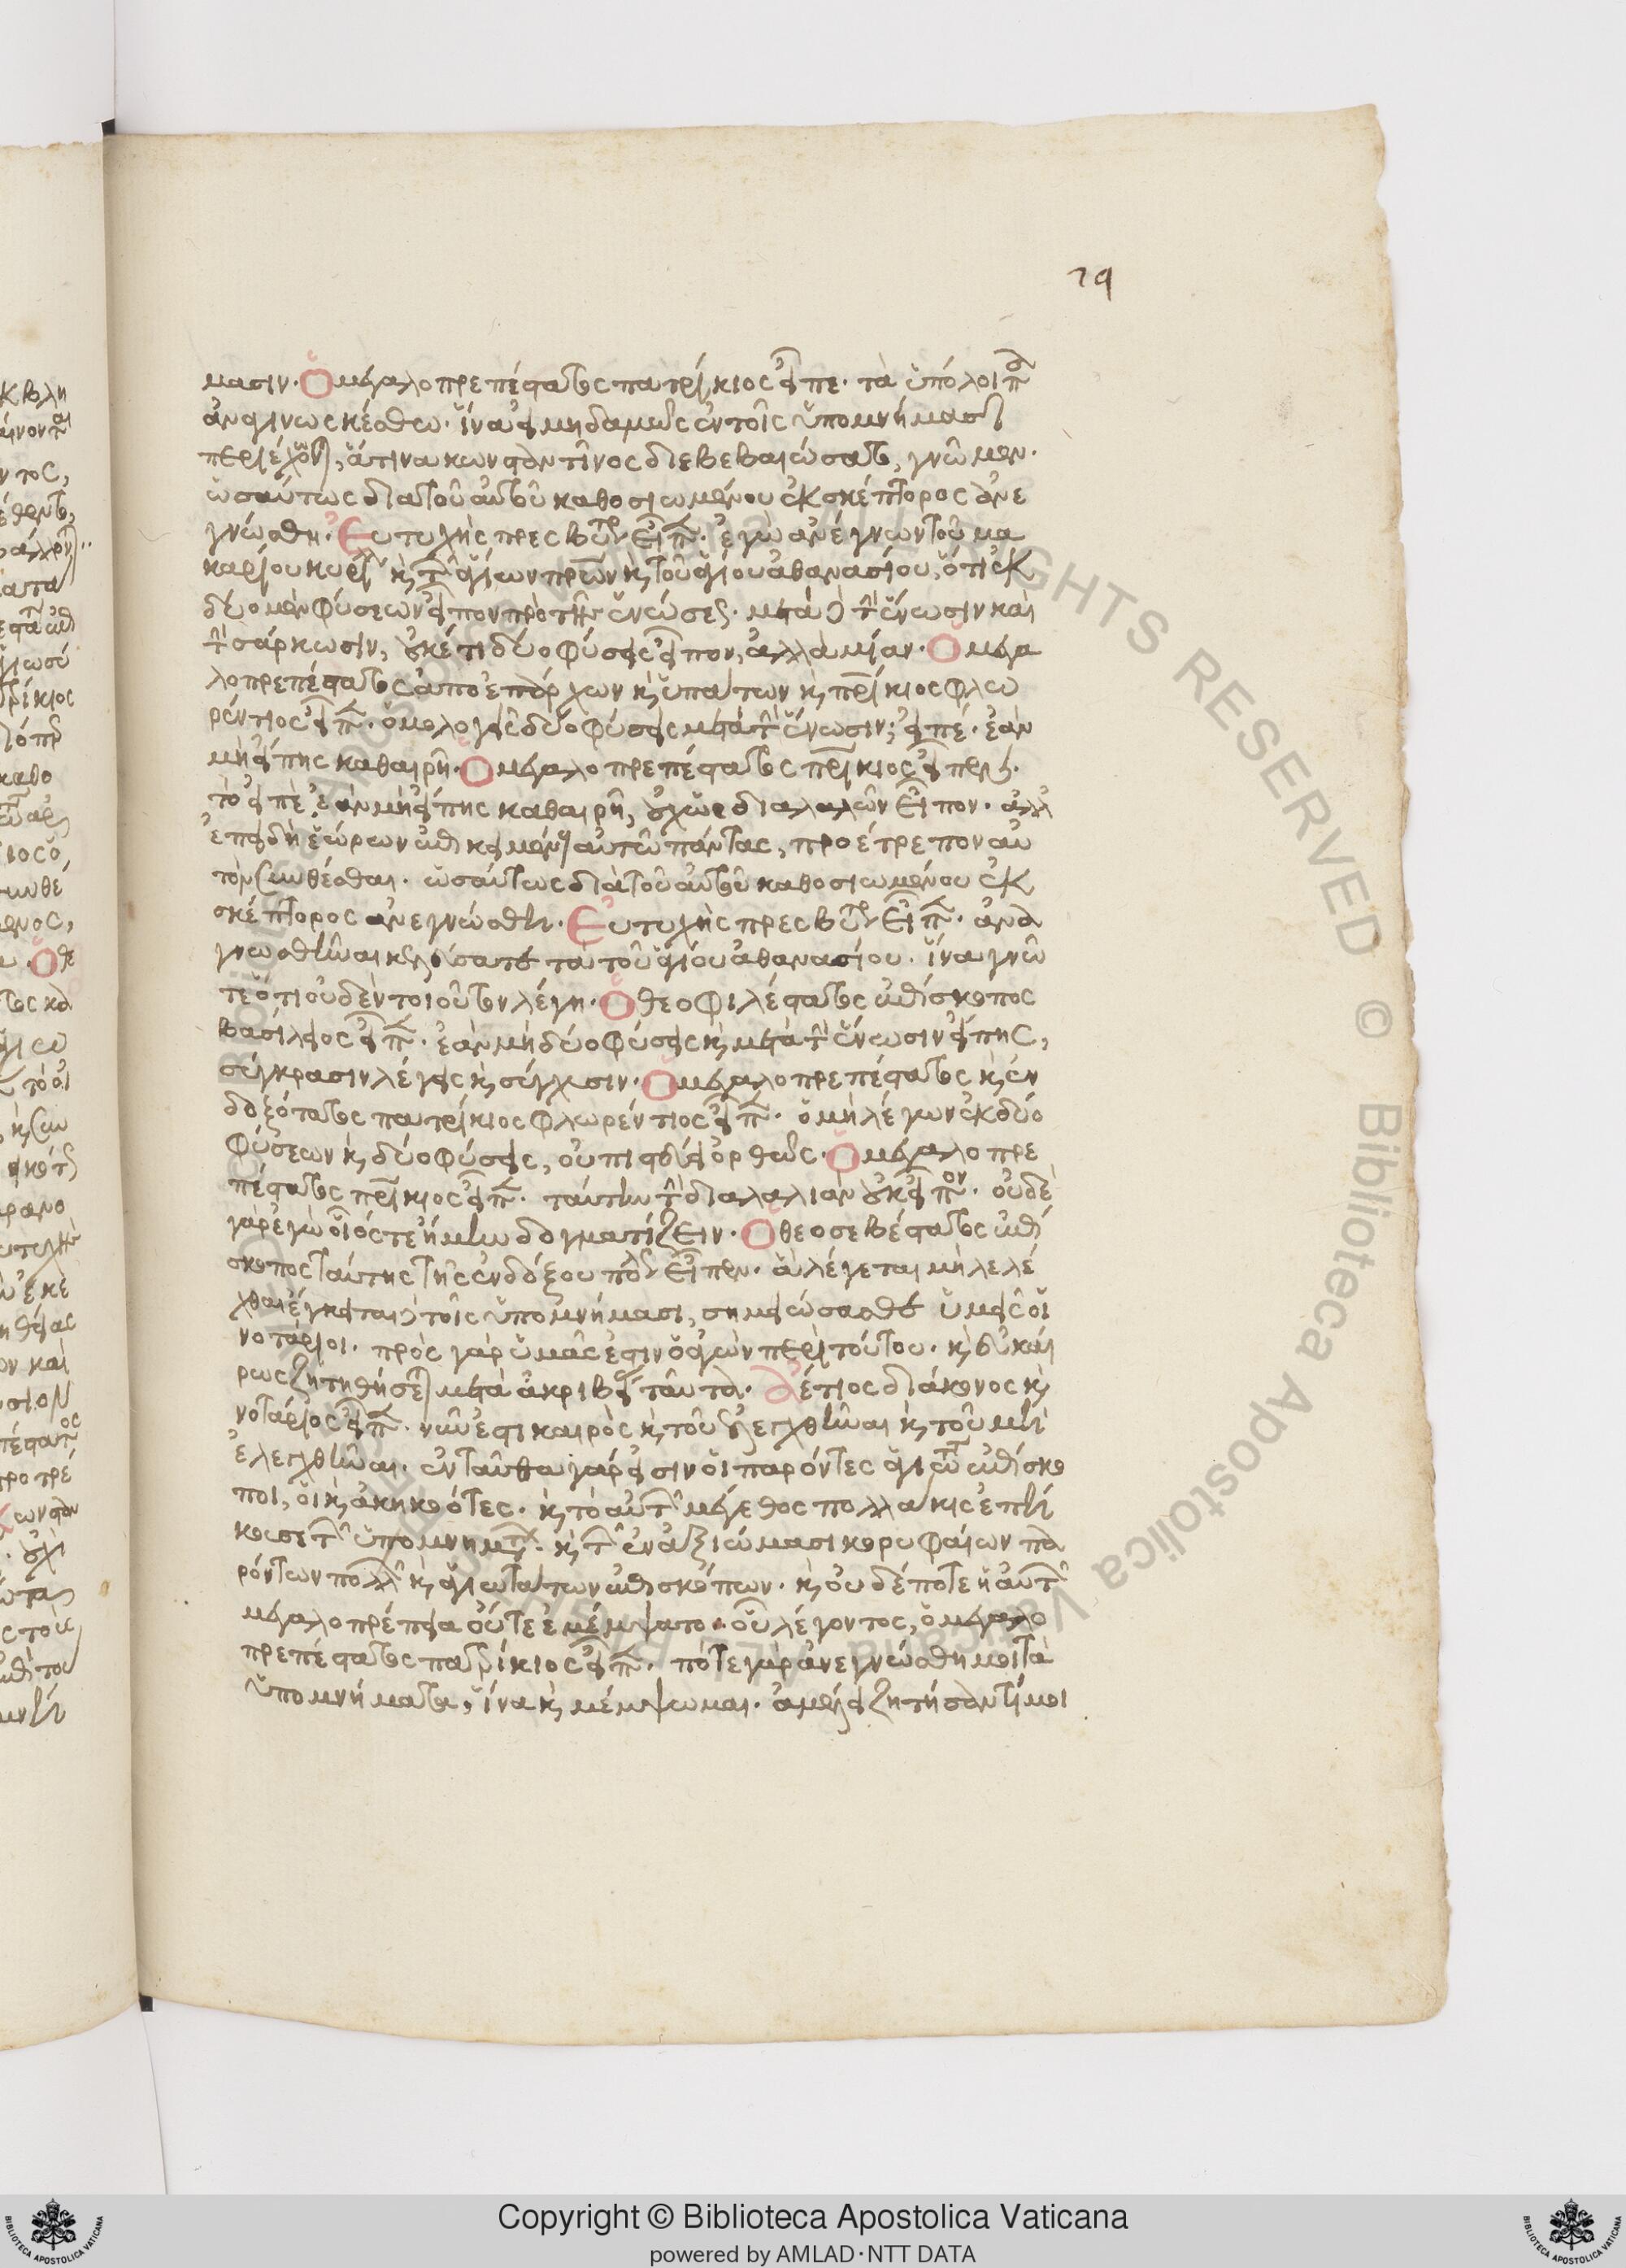 79
μασιν· Ὁ μεγαλοπρεπέστατος πατρίκιος εἶπε· τὰ ὑπόλοιπα
ἀναγινωσκέσθω· ἵνα εἰ μηδαμῶς ἐν τοῖς ὑπομνήμασι
περιέχονται, ἅτινα κωνσταντῖνος διεβεβαιώσατο, γνῶμεν·
ὡσαύτως διὰ τοῦ αὐτοῦ καθοσιωμένου ἐκσκέπτορος ἀνε
γνώσθη· Εὐτυχὴς πρεσβύτερος εἶπεν· ἐγὼ ἀνέγνων τοῦ μα
καρίου κυρίλλου καὶ τῶν ἁγίων πατέρων καὶ τοῦ ἁγίου ἀθανασίου, ὅτι ἐκ
δύο μὲν φύσεων εἶπον πρὸ τῆς ἑνώσεως· μετὰ δὲ τὴν ἕνωσιν καὶ
τὴν σάρκωσιν, οὐκέτι δύο φύσεις εἶπον, ἀλλὰ μίαν· Ὁ μεγα
λοπρεπέστατος ἀπὸ ἐπάρχων καὶ ὑπάτων καὶ πατρίκιος φλω
ρέντιος εἶπεν· ὁμολογεῖς δύο φύσεις μετὰ τὴν ἕνωσιν; εἰπέ· ἐὰν
μὴ εἴπῃς καθαιρῇ· Ὁ μεγαλοπρεπέστατος πατρίκιος εἶπεν·
τὸ εἰπὲ, ἐὰν μὴ εἴπῃς καθαιρῇ, οὐχ ὡς διαλαλῶν εἶπον· ἀλλ'
ἐπειδὴ ἑώρων ἐπικειμένους αὐτῷ πάντας, προέτρεπον αὐ
τὸν συνθέσθαι· ὡσαύτως διὰ τοῦ αὐτοῦ καθοσιωμένου ἐκ
σκέπτορος ἀνεγνώσθη· Εὐτυχὴς πρεσβύτερος εἶπεν· ἀνα
γνωσθῆναι κελεύσατε τὰ τοῦ ἁγίου ἀθανασίου· ἵνα γνῶ
τε ὅτι οὐδὲν τοιοῦτον λέγει· Ὁ θεοφιλέστατος ἐπίσκοπος
βασίλειος εἶπεν· ἐὰν μὴ δύο φύσεις καὶ μετὰ τὴν ἕνωσιν εἴπῃς,
σύγκρασιν λέγεις καὶ σύγχυσιν· Ὁ μεγαλοπρεπέστατος καὶ ἐν
δοξότατος πατρίκιος φλωρέντιος εἶπεν· ὁ μὴ λέγων ἐκ δύο
φύσεων καὶ δύο φύσεις, οὐ πιστεύει ὀρθῶς· Ὁ μεγαλοπρε
πέστατος πατρίκιος εἶπεν· ταύτην τὴν διαλαλιὰν οὐκ εἶπον· οὐδὲ
γὰρ ἐγὼ οἷός τε ἤμην δογματίζειν· Ὁ θεοσεβέστατος ἐπί
σκοπος ταύτης τῆς ἐνδόξου πόλεως εἶπεν· ἃ λέγεται μὴ λελέ
χθαι ἔγκειται δὲ τοῖς ὑπομνήμασι, σημειώσασθε ὑμεῖς οἱ
νοτάριοι· πρὸς γὰρ ὑμᾶς ἐστιν ὁ ἀγὼν περὶ τούτου· καὶ εὐκαί
ρως ζητηθήσεται μετὰ ἀκριβείας ταῦτα· Ἀέτιος διάκονος καὶ
νοτάριος εἶπεν· νῦν ἐστι καιρὸς καὶ τοῦ ἐλεγχθῆναι καὶ τοῦ μὴ
ἐλεγχθῆναι· ἐνταῦθα γάρ εἰσιν οἱ παρόντες ἁγιώτατοι ἐπίσκο
ποι, οἱ καὶ ἀκηκοότες· καὶ τὸ αὐτῶν μέγεθος πολλάκις ἐπή
κουσε τῶν ὑπομνημάτων· καὶ τῶν ἐν ἀξιώμασι κορυφαίων πα
ρόντων πολλῶν καὶ ἁγιωτάτων ἐπισκόπων· καὶ οὐδέποτε ἡ αὐτῶν
μεγαλοπρέπεια οὔτε ἐμέμψατο· οὗ λέγοντος, ὁ μεγαλο
πρεπέστατος πατρίκιος εἶπεν· πότε γὰρ ἀνεγνώσθη μοι τὰ
ὑπομνήματα, ἵνα καὶ μέμψωμαι· ἀμέλει ζητήσαντί μοι
Copyright © Biblioteca Apostolica Vaticana
powered by AMLAD·NTT DATA